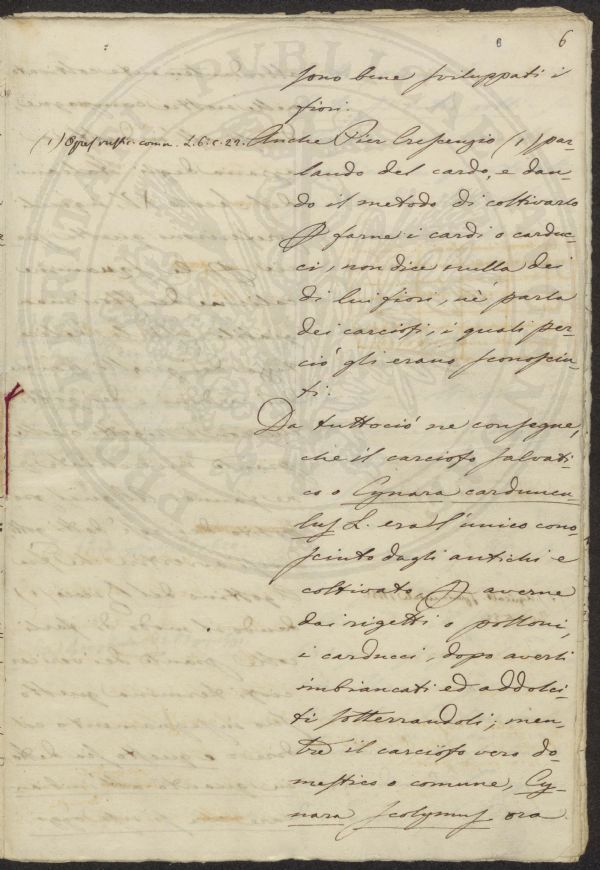 6
sono bene sviluppati i
fiori.
(1) Opus rustic. comm. L. 6. c. 22. Anche Pier Crescenzio (1) par-
lando del cardo, e dan-
do il metodo di coltivarlo
P farne i cardi o carduc-
ci, non dice nulla dei
di lui fiori, nè parla
dei carciofi, i quali per-
ciò gli erano sconosciu-
ti.
Da tuttociò ne consegue,
che il carciofo salvati-
co o Cynara carduncu
lus L. era l'unico cono-
sciuto dagli antichi e
coltivato P averne
dai rigetti o polloni,
i carducci, dopo averli
imbiancati ed addolci-
ti sotterrandoli; men-
tre il carciofo vero do-
mestico o comune, Cy-
nara scolymus era